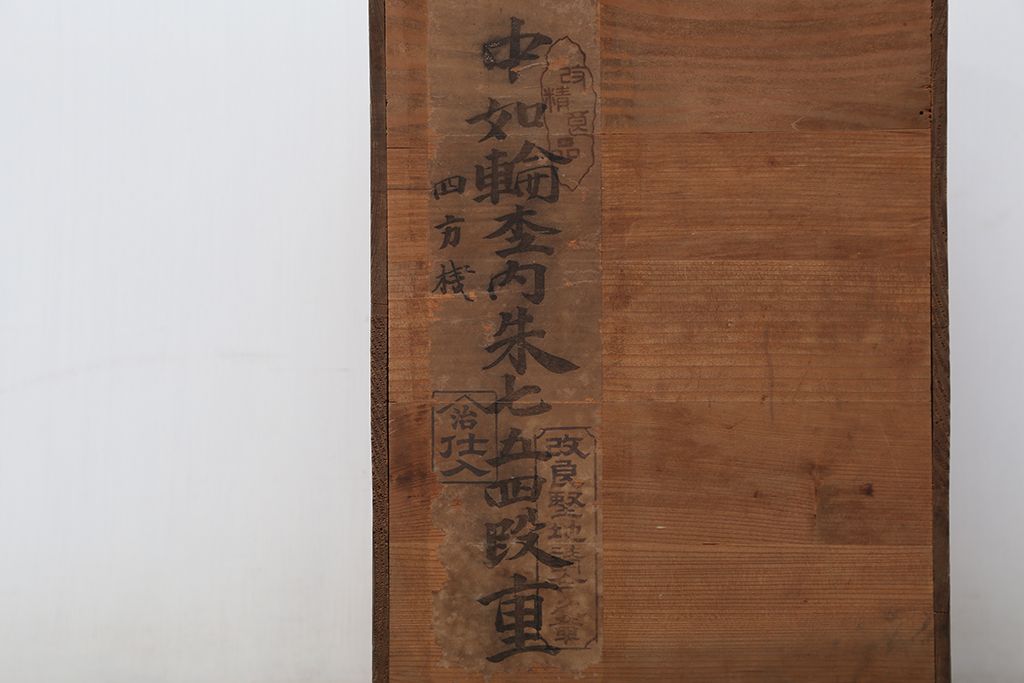 中如輪杢内朱七五四段重
四方棧
改
精良品
治
仕入
改良堅地